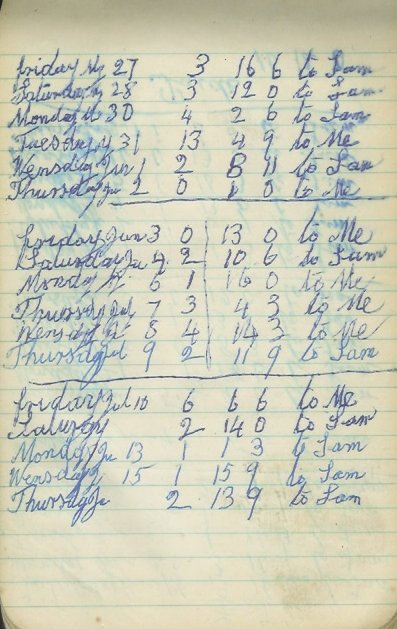 Friday My 27 3 16 6 to Sam
Saturday My 28 3 12 0 to Sam
Monday M 30 4 2 6 to Sam
Tuesday M 31 13 4 9 to Me
Wensday Jun 1 2 8 11 to Sam
Thursday Ju 2 0 1 0 to Me
Friday Jun 3 0 13 0 to Me
Saturday Ju 4 2 10 6 to Sam
Monday 6 1 16 0 to Me
Thursday 7 3 4 3 to Me
Wensday 8 4 14 3 to Me
Thursday 9 2 11 9 to Sam
Friday 10 6 6 6 to Me
2 14 0 to Sam
Monday Ju 13 1 1 3 to Sam
Wensday J 15 1 15 9 to Sam
Thursday Ju 2 13 9 to Sam